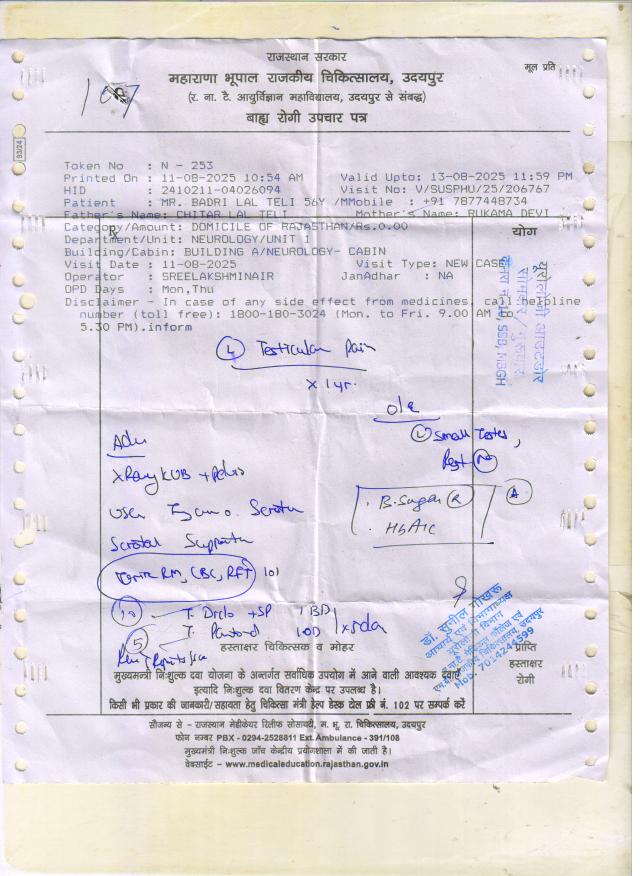 राजस्थान सरकार
मूल प्रति
महाराणा भूपाल राजकीय चिकित्सालय, उदयपुर
(र. ना. टै. आयुर्विज्ञान महाविद्यालय, उदयपुर से संबद्ध)
बाह्य रोगी उपचार पत्र
93/24
Token No : N - 253
Printed On : 11-08-2025 10:54 AM Valid Upto: 13-08-2025 11:59 PM
HID : 2410211-04026094 Visit No: V/SUSPHU/25/206767
Patient : MR. BADRI LAL TELI 56Y /MMobile : +91 7877448734
Father's Name: CHITAR LAL TELI Mother's Name: RUKAMA DEVI
Category/Amount: DOMICILE OF RAJASTHAN/Rs.0.00
योग
Department/Unit: NEUROLOGY/UNIT 1
Building/Cabin: BUILDING A/NEUROLOGY- CABIN
Visit Date : 11-08-2025 Visit Type: NEW CASE
Operator : SREELAKSHMINAIR JanAdhar : NA
OPD Days : Mon,Thu
Disclaimer - In case of any side effect from medicines, call helpline
number (toll free): 1800-180-3024 (Mon. to Fri. 9.00 AM to
5.30 PM).inform
यूरोलोजी आउटडोर
SSB, MBGH
Testicular Pain
x 1 yr.
o/e
(L) Small Testes,
Adv
X Ray KUB + Pelvis
B. Sugar (R)
HbA1C
Scrotal
Urine RM, CBC, RFT
T. Diclo + SP 1 BD
T. Pantop 1 OD x 5 da
हस्ताक्षर चिकित्सक व मोहर
डॉ. सुनील गोखरू
आचार्य एवं विभागाध्यक्ष
यूरोलोजी विभाग
Mob. 7014244599
प्राप्ति
हस्ताक्षर
रोगी
मुख्यमन्त्री निःशुल्क दवा योजना के अन्तर्गत सर्वाधिक उपयोग में आने वाली आवश्यक दवाएं
इत्यादि निःशुल्क दवा वितरण केन्द्र पर उपलब्ध है।
किसी भी प्रकार की जानकारी/सहायता हेतु चिकित्सा मंत्री हेल्प डेस्क टोल फ्री नं. 102 पर सम्पर्क करें
सौजन्य से - राजस्थान मेडीकेयर रिलीफ सोसायटी, म. भू. रा. चिकित्सालय, उदयपुर
फोन नम्बर PBX - 0294-2528811 Ext. Ambulance - 391/108
मुख्यमंत्री निःशुल्क जाँच केन्द्रीय प्रयोगशाला में की जाती है।
वेबसाईट - www.medicaleducation.rajasthan.gov.in